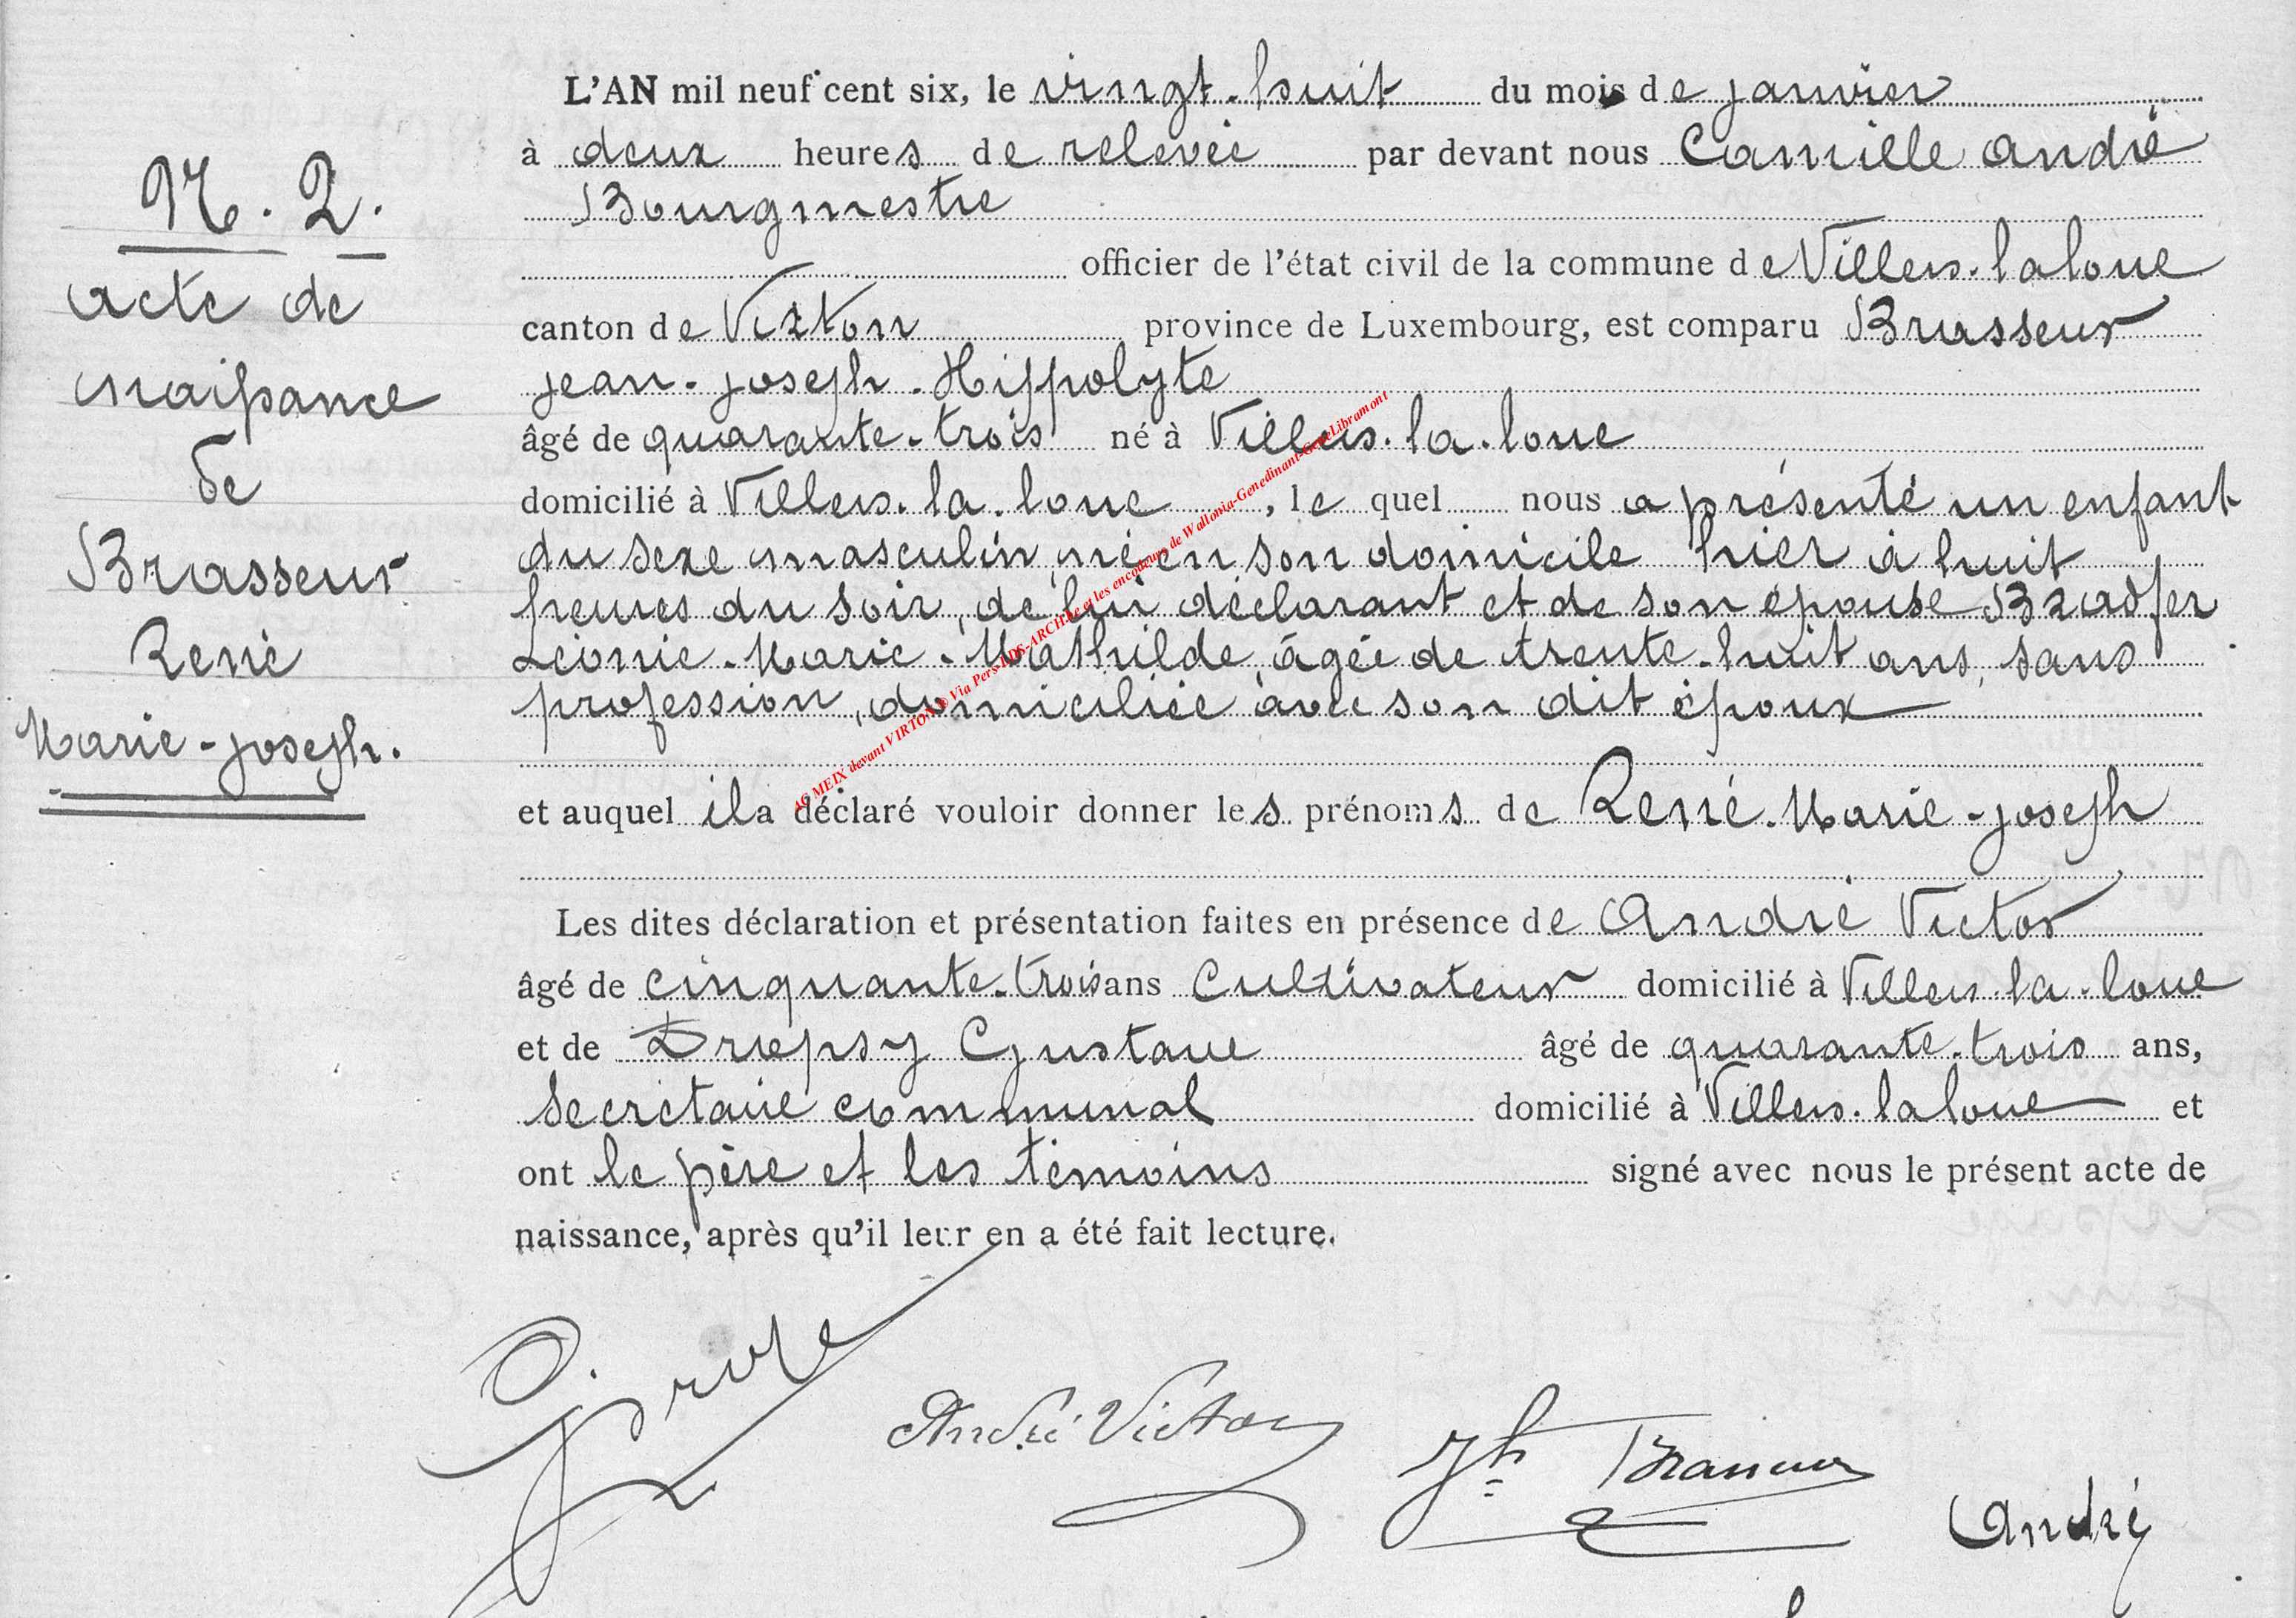 N. 2.
acte de
naissance
de
Brasseur
René
Marie-joseph.
L'AN mil neuf cent six, le vingt-huit du mois de janvier
à deux heures de relevée par devant nous Camille André
Bourgmestre
officier de l'état civil de la commune de Villers-laloue
canton de Virton province de Luxembourg, est comparu Brasseur
jean-joseph-Hippolyte
âgé de quarante-trois né à Villers-la-loue
domicilié à Villers-la-loue, lequel nous a présenté un enfant
du sexe masculin, né en son domicile hier à huit
heures du soir, de lui déclarant et de son épouse Bradfer
Léonie-Marie-Mathilde, âgée de trente-huit ans, sans
profession, domiciliée avec son dit époux
et auquel il a déclaré vouloir donner les prénoms de René-Marie-joseph
Les dites déclaration et présentation faites en présence de André Victor
âgé de cinquante-trois ans Cultivateur domicilié à Villers-la-loue
et de Gustave âgé de quarante-trois ans,
secrétaire communal domicilié à Villers-laloue et
ont le père et les témoins signé avec nous le présent acte de
naissance, après qu'il leur en a été fait lecture.
André Victor
Jh Brasseur
André
AC MEIX devant VIRTON © Via Pers-LDS-ARCH.be et les encodeurs de Wallonia-Genedinant-GeneLibramont